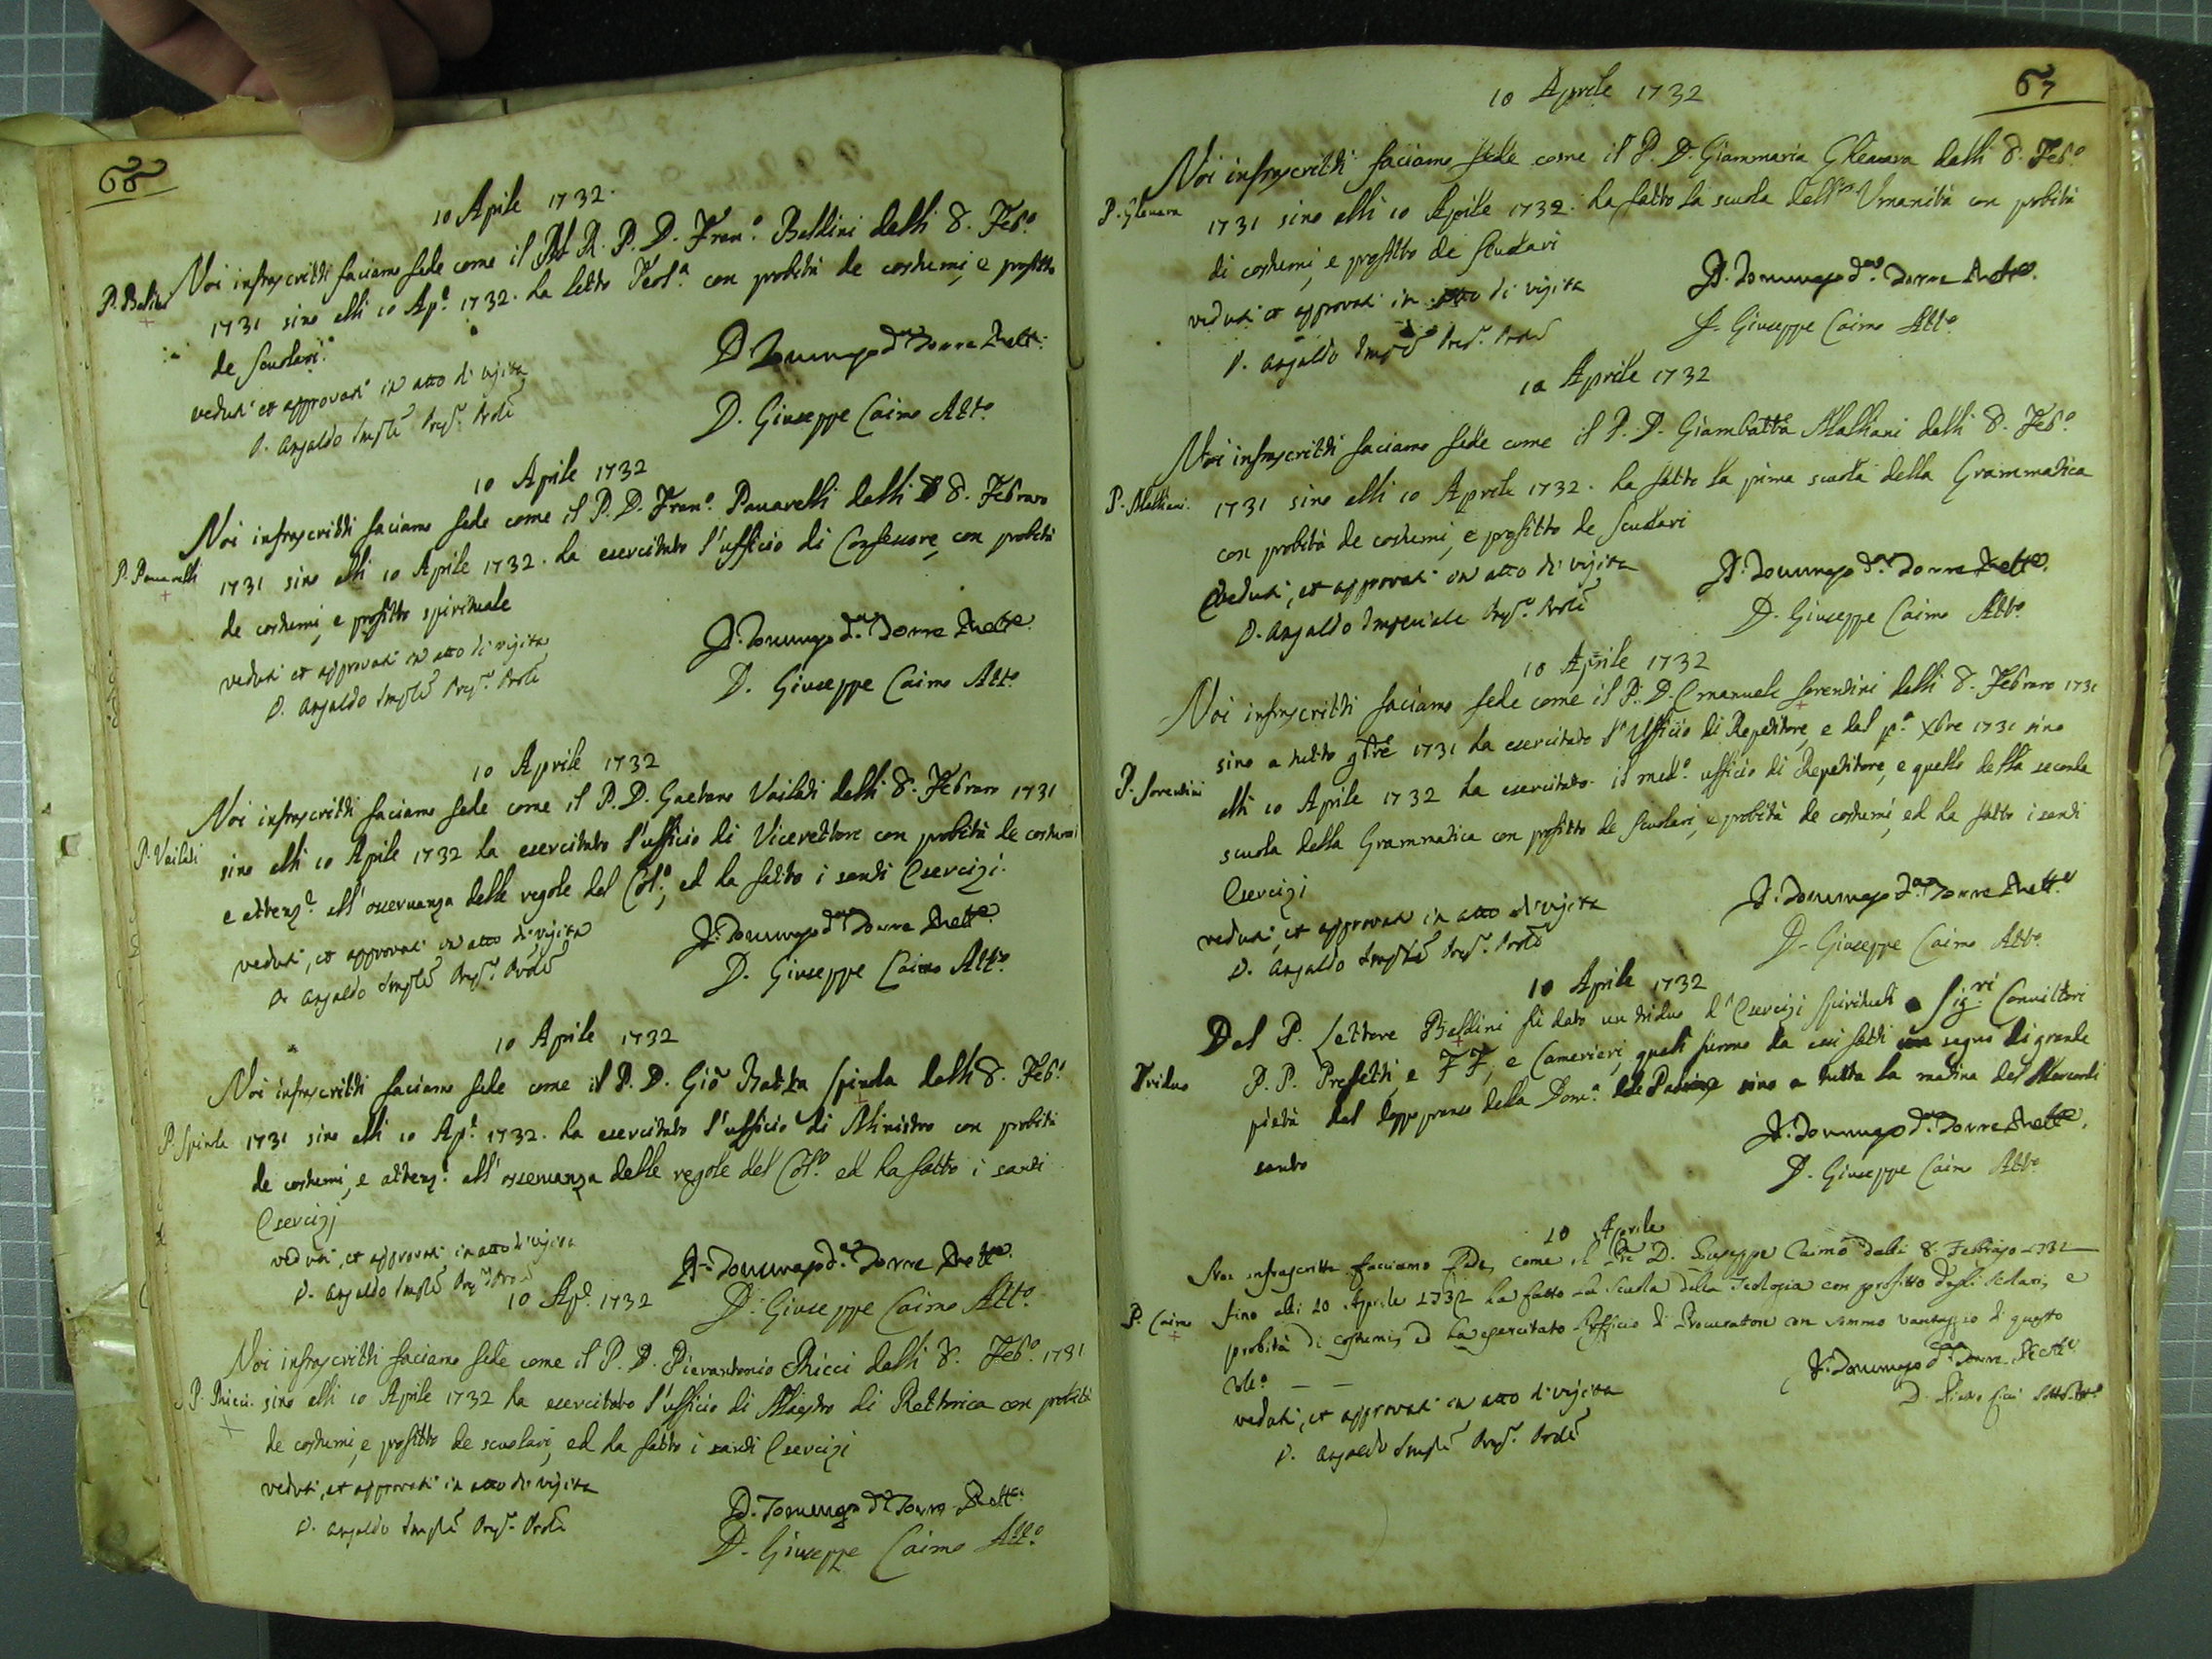 10 Aprile 1732.
Noi infrascritti facciamo fede come il M. R. P. D. Fran.º Bellini dalli 8. Feb.º
P. Bellini
1731 sino alli 10 Ap.e 1732. ha letto Teol.a con probità de costumi, e profitto
de Scuolari.
veduti et approvati in atto di visita
D. Ansaldo Imp.le Prep.
D. Domenico Torre Rett.
D. Giuseppe Caimo Att.º
10 Aprile 1732
Noi infrascritti faciamo fede come il P. D. Fran.º Panarelli dalli 8. Febraro
P. Panarelli
1731 sino alli 10 Aprile 1732. ha esercitato l'ufficio di Confessore, con probità
de costumi, e profitto spirituale
veduti et approvati in atto di visita
D. Ansaldo Imp.le Prep.
D. Domenico Torre Rett.e
D. Giuseppe Caimo Att.º
10 Aprile 1732
Noi infrascritti faciamo fede come il P. D. Gaetano Vailati dalli 8. Febraro 1731
P. Vailati
sino alli 10 Aprile 1732 ha esercitato l'ufficio di Vicerettore con probità de costumi
e attenz.e all'osservanza delle regole del Col.º, ed ha fatto i santi Esercizi.
veduti, et approvati in atto di visita
D. Ansaldo Imp.le Prep.
D. Domenico Torre Rett.e
D. Giuseppe Caimo Att.º
10 Aprile 1732
Noi infrascritti faciamo fede come il P. D. Gio Batta Spinola dalli 8. Feb.º
P. Spinola
1731 sino alli 10 Ap.e 1732. ha esercitato l'ufficio di Ministro con probità
de costumi, e attenz.e all'osservanza delle regole del Col.º ed ha fatto i santi
Esercizj
veduti, et approvati in atto di visita
D. Ansaldo Imp.le Prep.
D. Domenico Torre Rett.e
D. Giuseppe Caimo Att.º
10 Ap.e 1732
Noi infrascritti faciamo fede come il P. D. Pierantonio Ricci dalli 8. Feb.º 1731
P. Ricci.
sino alli 10 Aprile 1732 ha esercitato l'ufficio di Maestro di Rettorica con probità
de costumi, e profitto de scuolari, ed ha fatto i santi Esercizi
veduti, et approvati in atto di visita
D. Ansaldo Imp.le Prep.
D. Domenico Torre Rett.e
D. Giuseppe Caimo Att.º
10 Aprile 1732
Noi infrascritti faciamo fede come il P. D. Giammaria Ghevara dalli 8. Feb.º
P. Ghevara
1731 sino alli 10 Aprile 1732. ha fatto la scuola dell' Umanità con probità
di costumi, e profitto de Scuolari
veduti et approvati in atto di visita
D. Ansaldo Imp.le Prep.
D. Domenico Torre Rett.e
D. Giuseppe Caimo Att.º
10 Aprile 1732
Noi infrascritti faciamo fede come il P. D. Giambatta Malliani dalli 8. Feb.º
P. Malliani.
1731 sino alli 10 Aprile 1732. ha fatto la prima scuola della Grammatica
con probità de costumi, e profitto de Scuolari
Veduti, et approvati in atto di visita
D. Ansaldo Imperiale Prep.
D. Domenico Torre Rett.e
D. Giuseppe Caimo Att.º
10 Aprile 1732
Noi infrascritti faciamo fede come il P. D. Emanuele Sorentini dalli 8. Febraro 1731
sino a tutto 9bre 1731 ha esercitato l'Ufficio di Repetitore, e dal p.º Xbre 1731 sino
P. Sorentini
alli 10 Aprile 1732 ha esercitato il med.º ufficio di Repetitore, e quello della seconda
scuola della Grammatica con profitto de Scuolari, e probità de costumi, ed ha fatto i santi
Esercizi
veduti, et approvati in atto di visita
D. Ansaldo Imp.le Prep.
D. Domenico Torre Rett.e
D. Giuseppe Caimo Att.º
10 Aprile 1732
Dal P. Lettore Bellini fù dato un triduo d'Esercizi spirituali a Sig.ri Convittori
Triduo
P. P. Prefetti, e FF, e Camerieri, quali furono da essi fatti con segno di grande
pietà dal doppo pranso della Dom.a delle Palme sino a tutta la matina del Mercordi
santo
D. Domenico Torre Rett.e
D. Giuseppe Caimo Att.º
10 Aprile
Noi infrascritti facciamo Fede, come il Pre D. Giuseppe Caimo dalli 8. Febbrajo 1731
P. Caimo
fino alli 10 Aprile 1732 ha fatto la Scuola della Teologia con profitto degli Scolari, e
probità di costumi, ed ha esercitato l'Ufficio di Procuratore con sommo vantaggio di questo
Coll.º
veduti, et approvati in atto di visita
D. Ansaldo Imp.le Prep.
D. Domenico Torre Rett.e